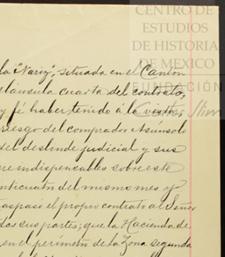 CENTRO DE
ESTUDIOS
DE HISTORIA
DE MEXICO
FUNDACIÓN
la "Nariz", situada en el Canton
clausula cuarta del contrato,
y fé haber tenido á la vista,
riesgo del comprador Asunsolo
del deslinde judicial y sus
indispensables sobre este
del mismo mes y
traspasó el propio contrato al Señor
dos partes; que la Hacienda de
en el perímetro de la Zona Segunda